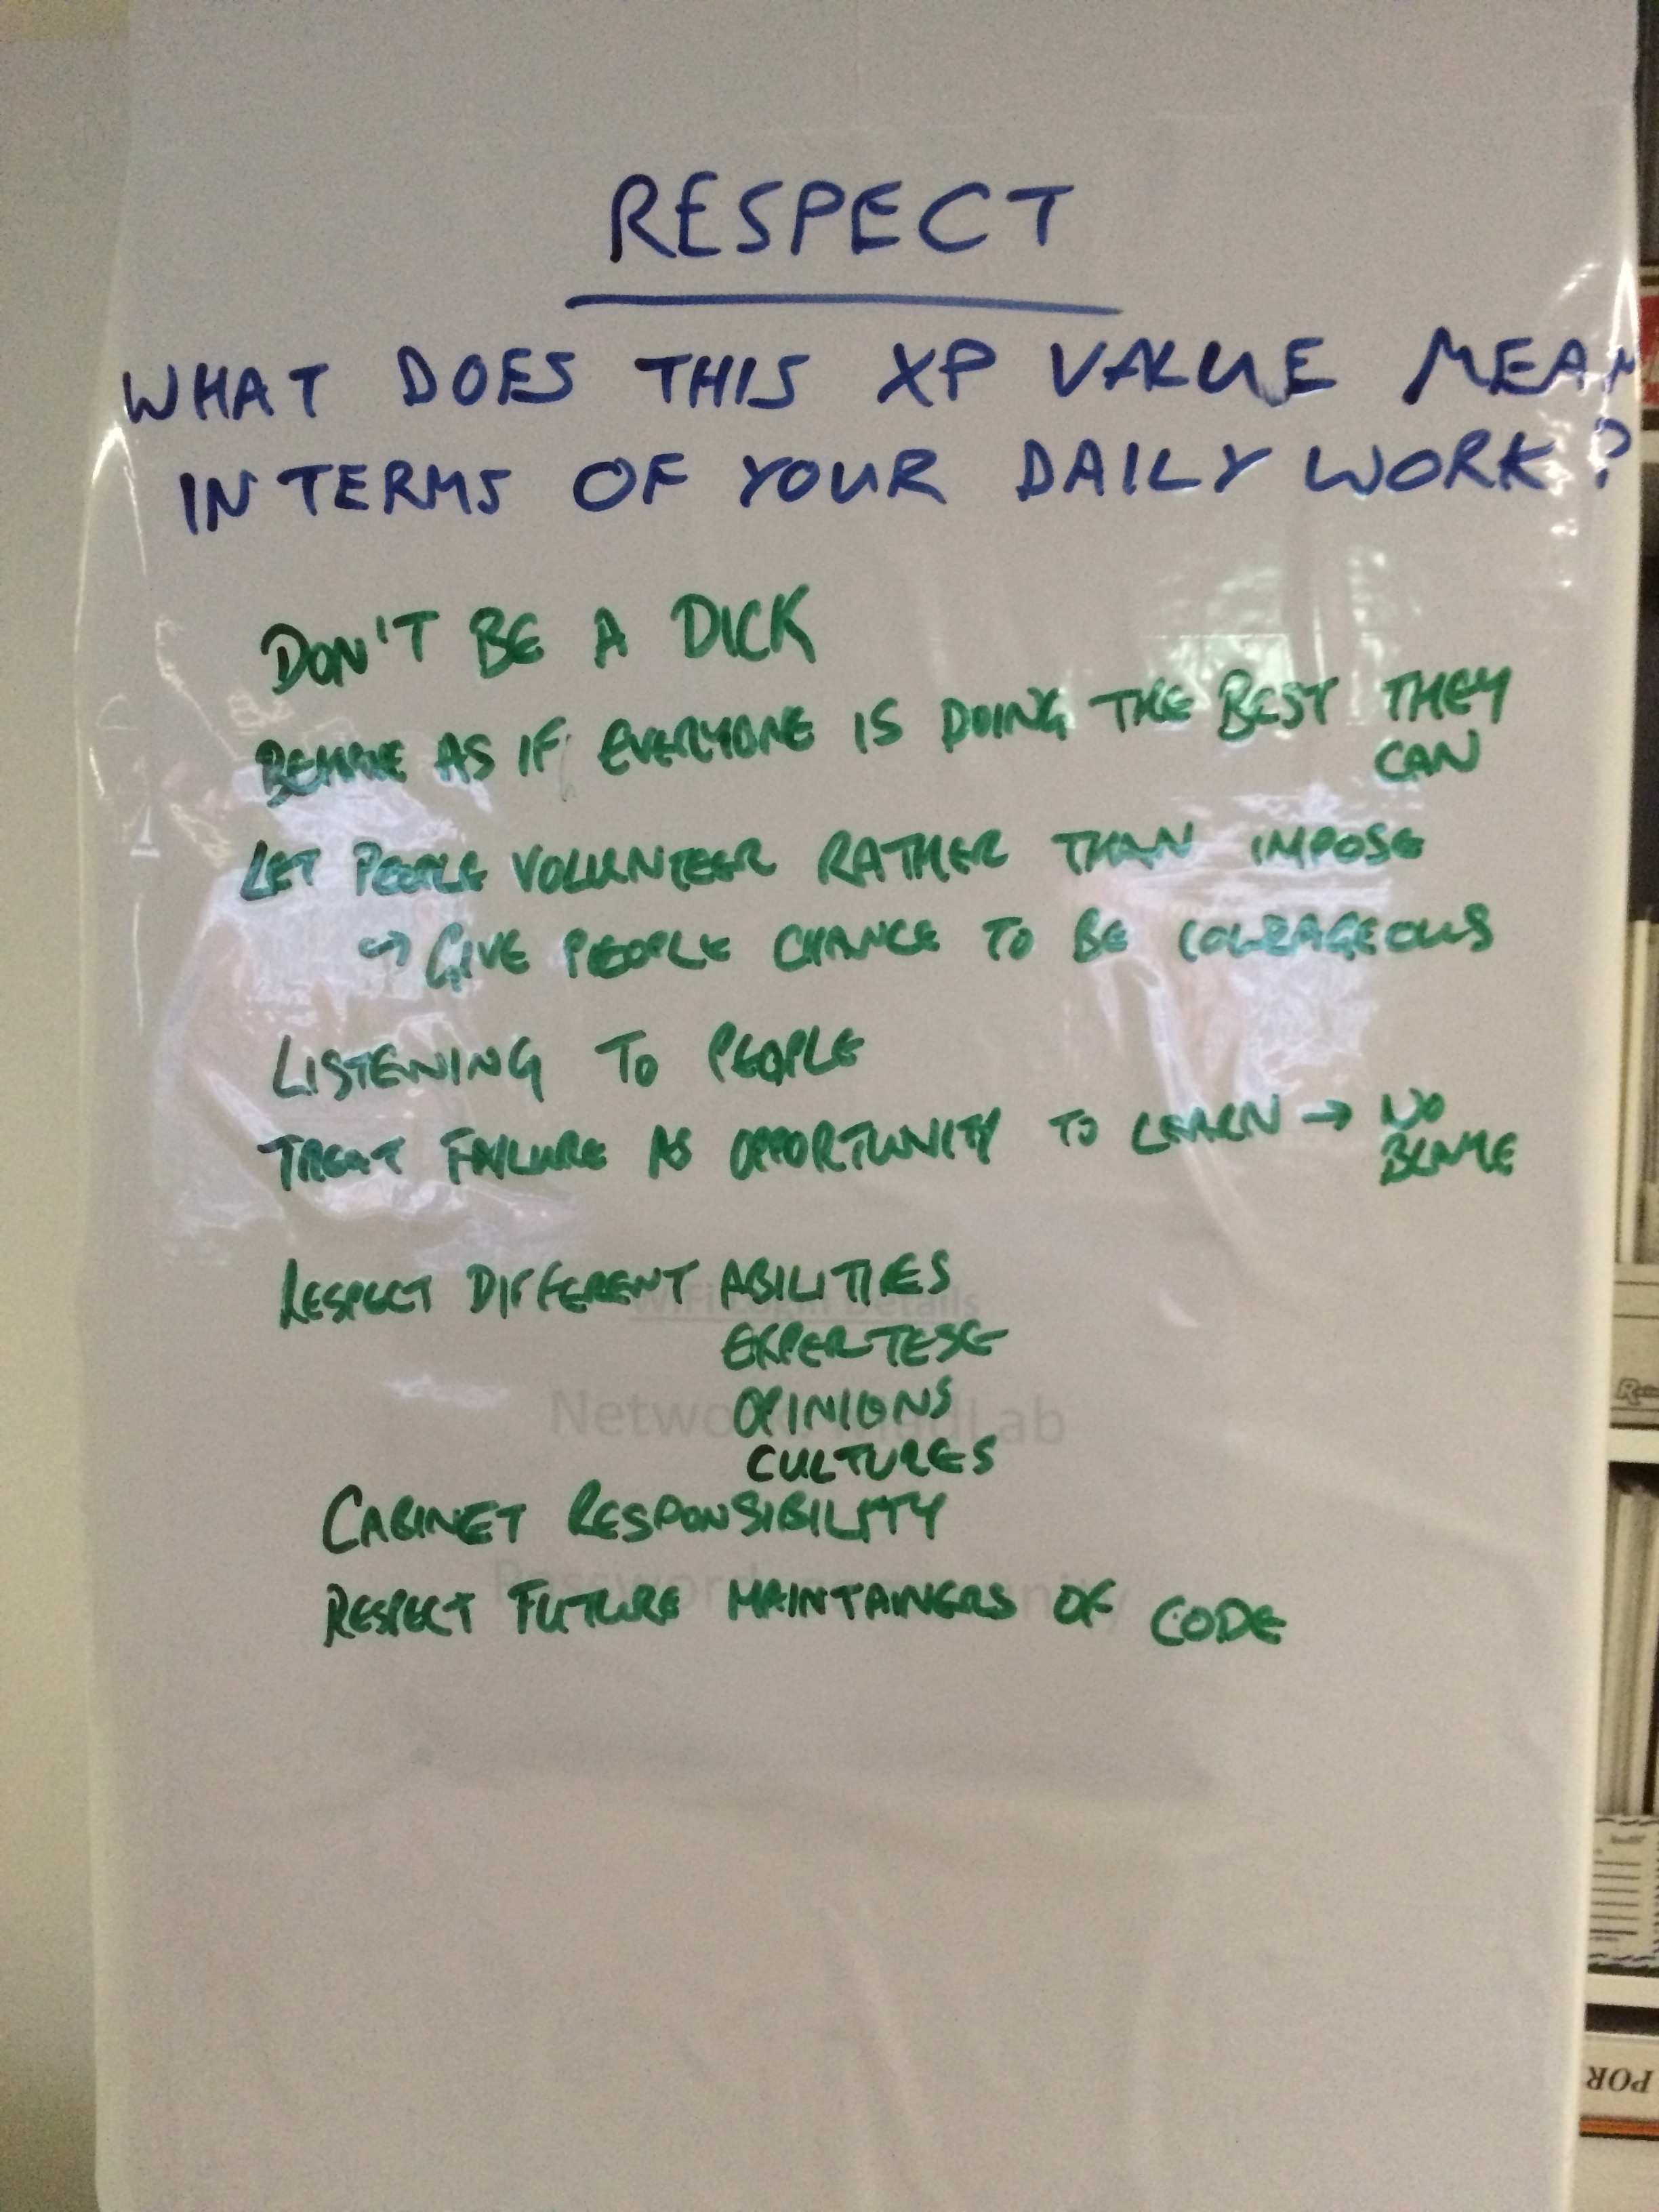 RESPECT
WHAT DOES THIS XP VALUE MEAN
IN TERMS OF YOUR DAILY WORK?
DON'T BE A DICK
BEHAVE AS IF EVERYONE IS DOING THE BEST THEY
CAN
LET PEOPLE VOLUNTEER RATHER THAN IMPOSE
↪ GIVE PEOPLE CHANCE TO BE COURAGEOUS
LISTENING TO PEOPLE
TREAT FAILURE AS OPPORTUNITY TO LEARN → NO
BLAME
RESPECT DIFFERENT ABILITIES
WiFi Login Details
EXPERTESE
OPINIONS
CULTURES
CABINET RESPONSIBILITY
RESPECT FUTURE MAINTAINERS OF CODE
POR